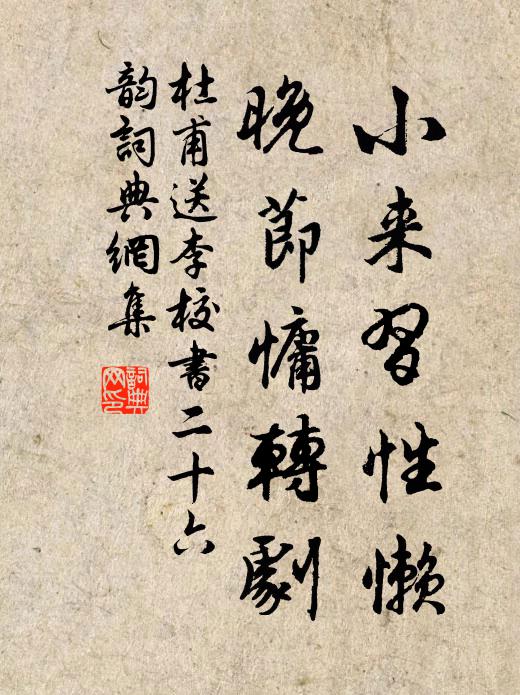 小来習性懒
晚節慵轉劇
杜甫送李校書二十六
韵詞典網集
詞典網印